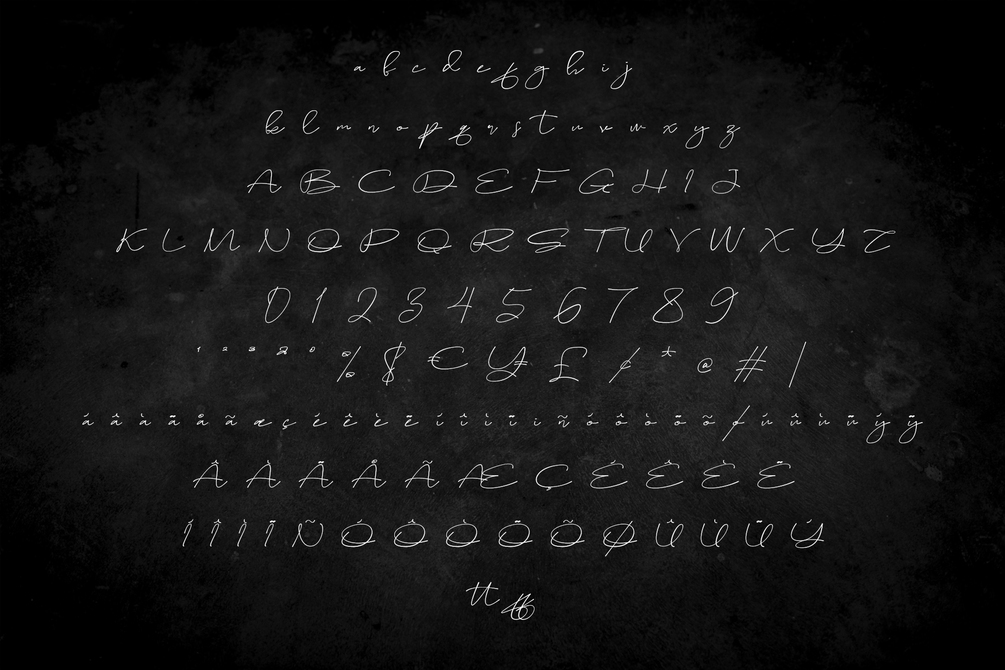 a b c d e f g h i j
k l m n o p q r s t u v w x y z
A B C D E F G H I J
K L M N O P Q R S T U V W X Y Z
0 1 2 3 4 5 6 7 8 9
% $ € ¥ £ ¢ * @ # |
á â à ä å ã æ ç é ê è ë í î ì ï i ñ ó ô ò ö õ ø ú û ù ü ý ÿ
Â À Ä Å Ã Æ Ç É Ê È Ë
Í Î Ì Ï Ñ Ó Ô Ò Ö Õ Ø Û Ù Ü Ý
tt ff